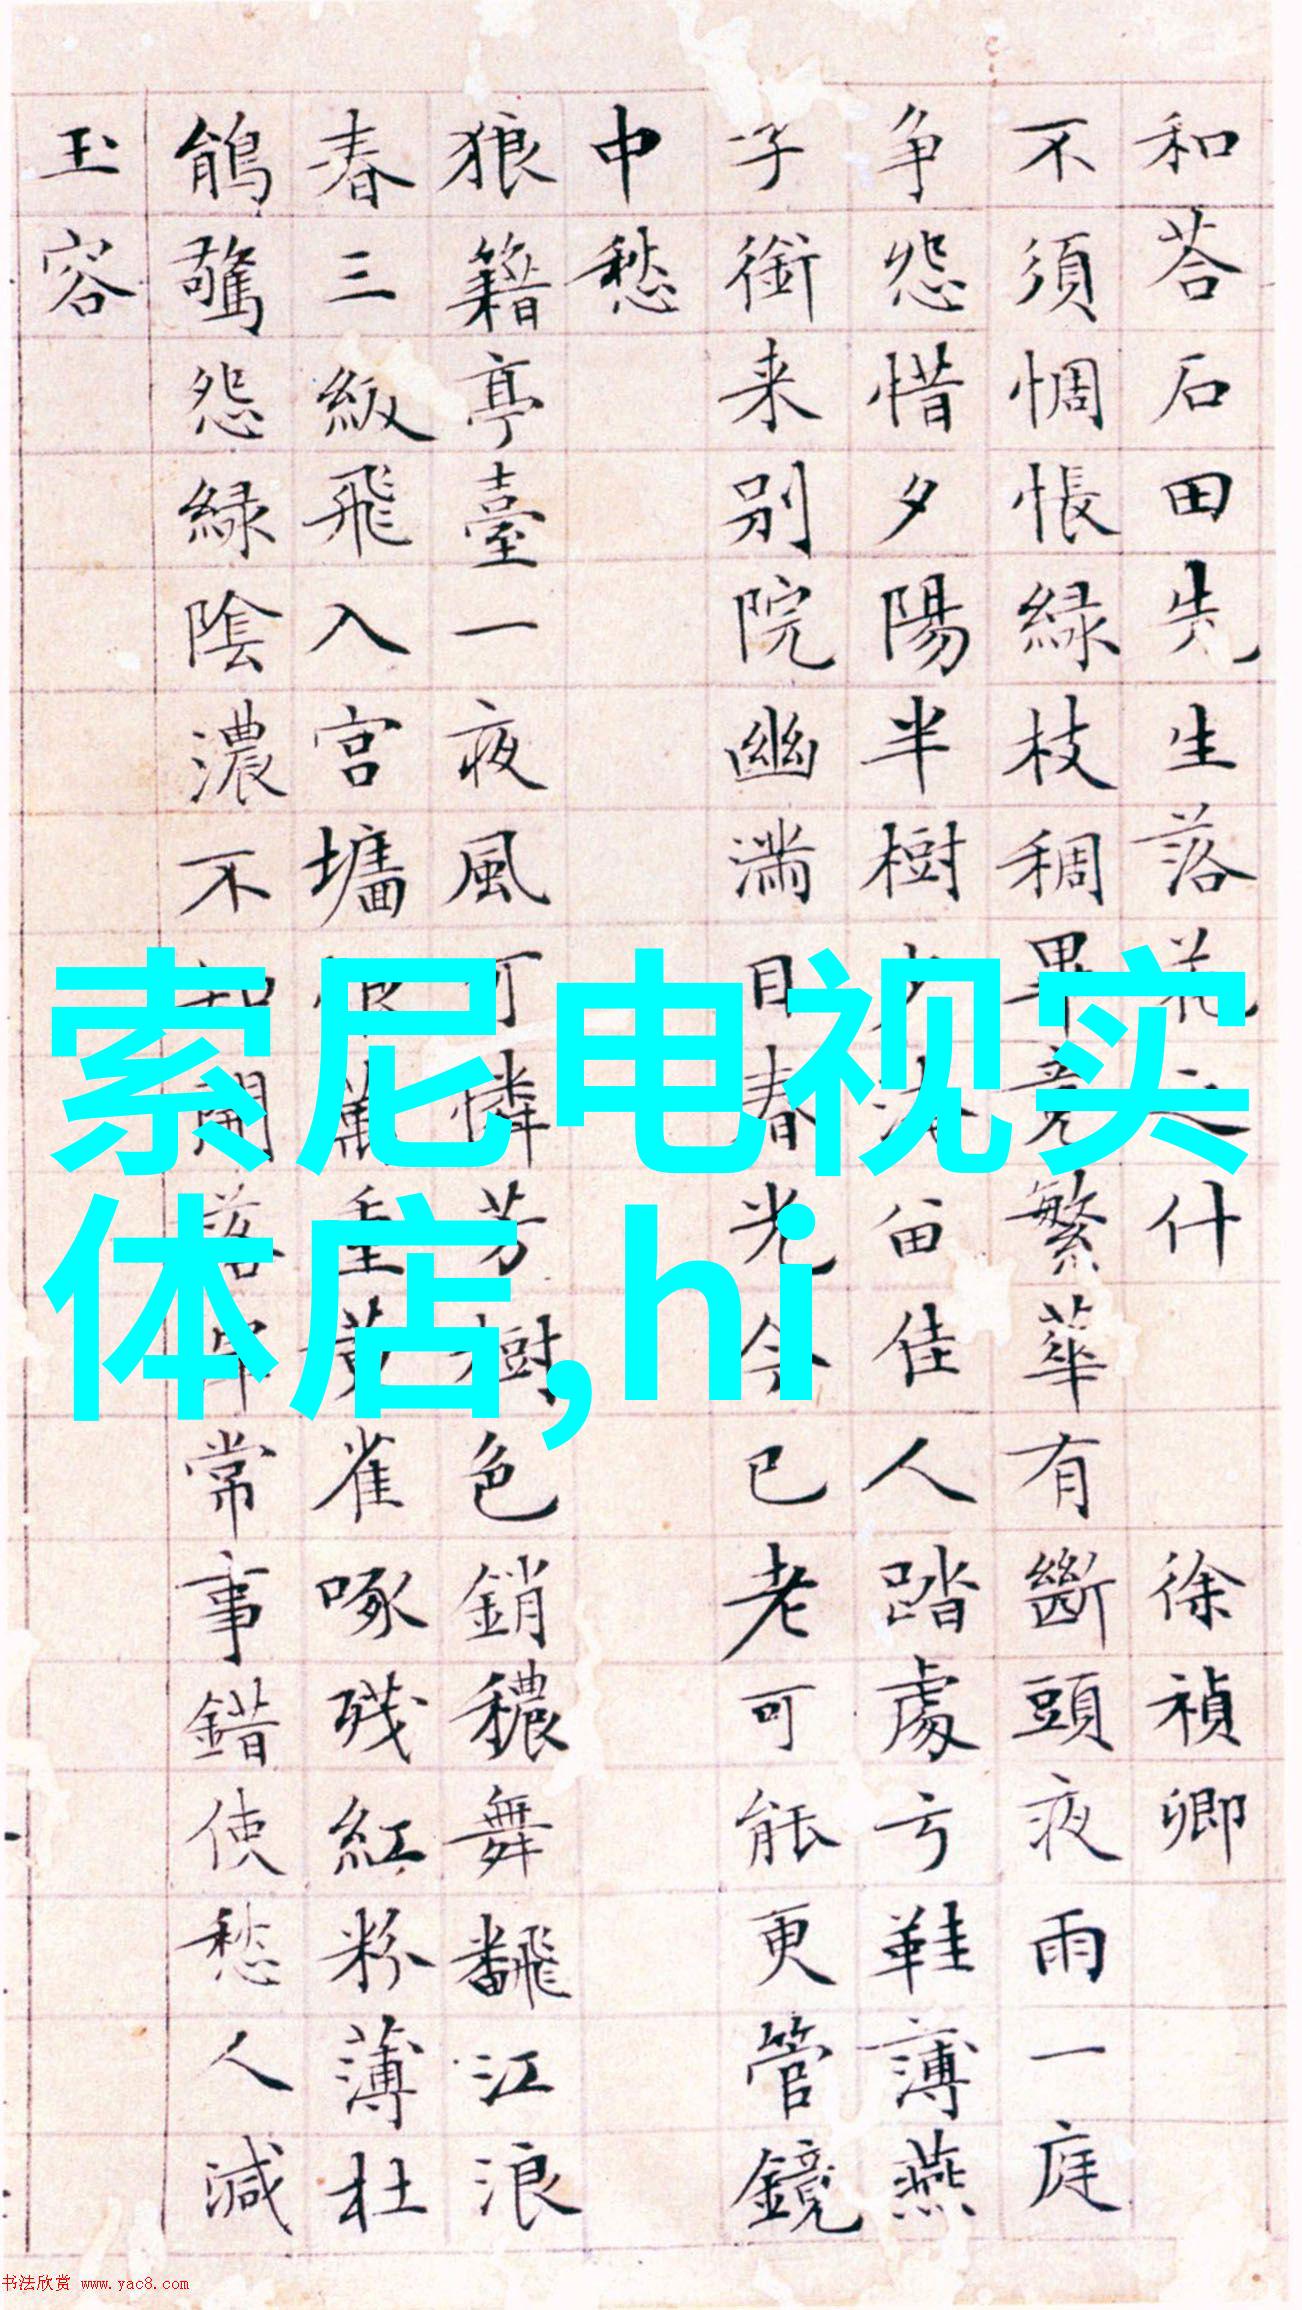 和荅石田先生落花之什 徐禎卿
不須惆悵綠枝稠畢竟繁華有斷頭夜雨一庭
争怨惜夕陽半樹少淹留佳人踏處弓鞋薄燕
子銜来別院幽滿目春光今已老可能更管鏡
中愁
狼籍亭臺一夜風可憐芳樹色銷穠舞飜江浪
春三級飛入宮墻恨萬重黄雀啄殘紅粉薄杜
鵑驚怨綠陰濃不知開落尋常事錯使愁人減
玉容
索尼电视实
体店,hi
书法欣赏 www.yac8.com